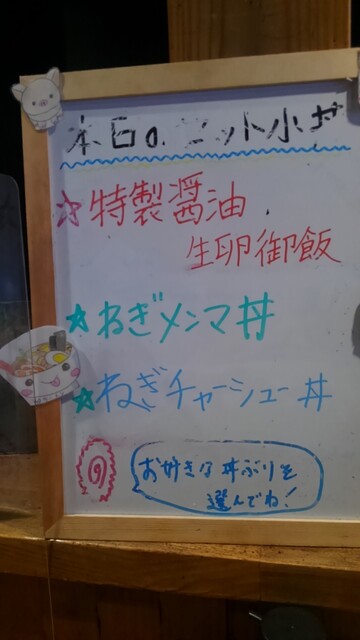 本日の セット小丼
☆特製醤油
生卵御飯
☆ねぎメンマ丼
☆ねぎチャーシュー丼
お好きな丼ぶりを
選んでね!